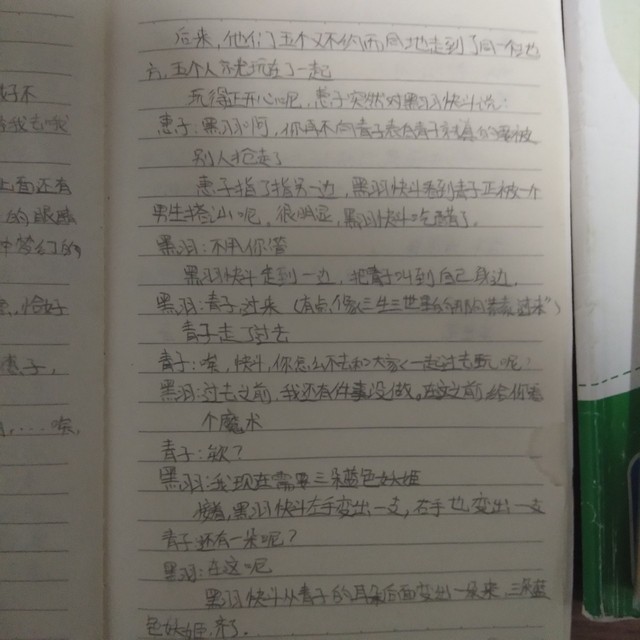 好不
上面还有
的眼感
惠子,
后来,他们五个又不约而同地走到了同一个地
方,五个人又走玩在了一起
玩得正开心呢,惠子突然对黑羽快斗说:
惠子:黑羽啊,你再不向青子表白青子就真的要被
别人抢走了
惠子指了指另一边,黑羽快斗看到青子正被一个
男生搭讪呢,很明显,黑羽快斗吃醋了。
黑羽:不用你管
黑羽快斗走到一边,把青子叫到自己身边
黑羽:青子,过来(有点像三生三世里的
青子走了过去
青子:哈,快斗,你怎么不去和大家一起过去玩呢?
黑羽:过去之前,我还有件事没做。在这之前,给你看
个魔术
青子:欸?
黑羽:我现在需要三朵蓝色妖姬
接着,黑羽快斗左手变出一支,右手也变出一支
青子:还有一朵呢?
黑羽:在这呢
黑羽快斗从青子的耳朵后面变出一朵来,三朵蓝
色妖姬齐了。